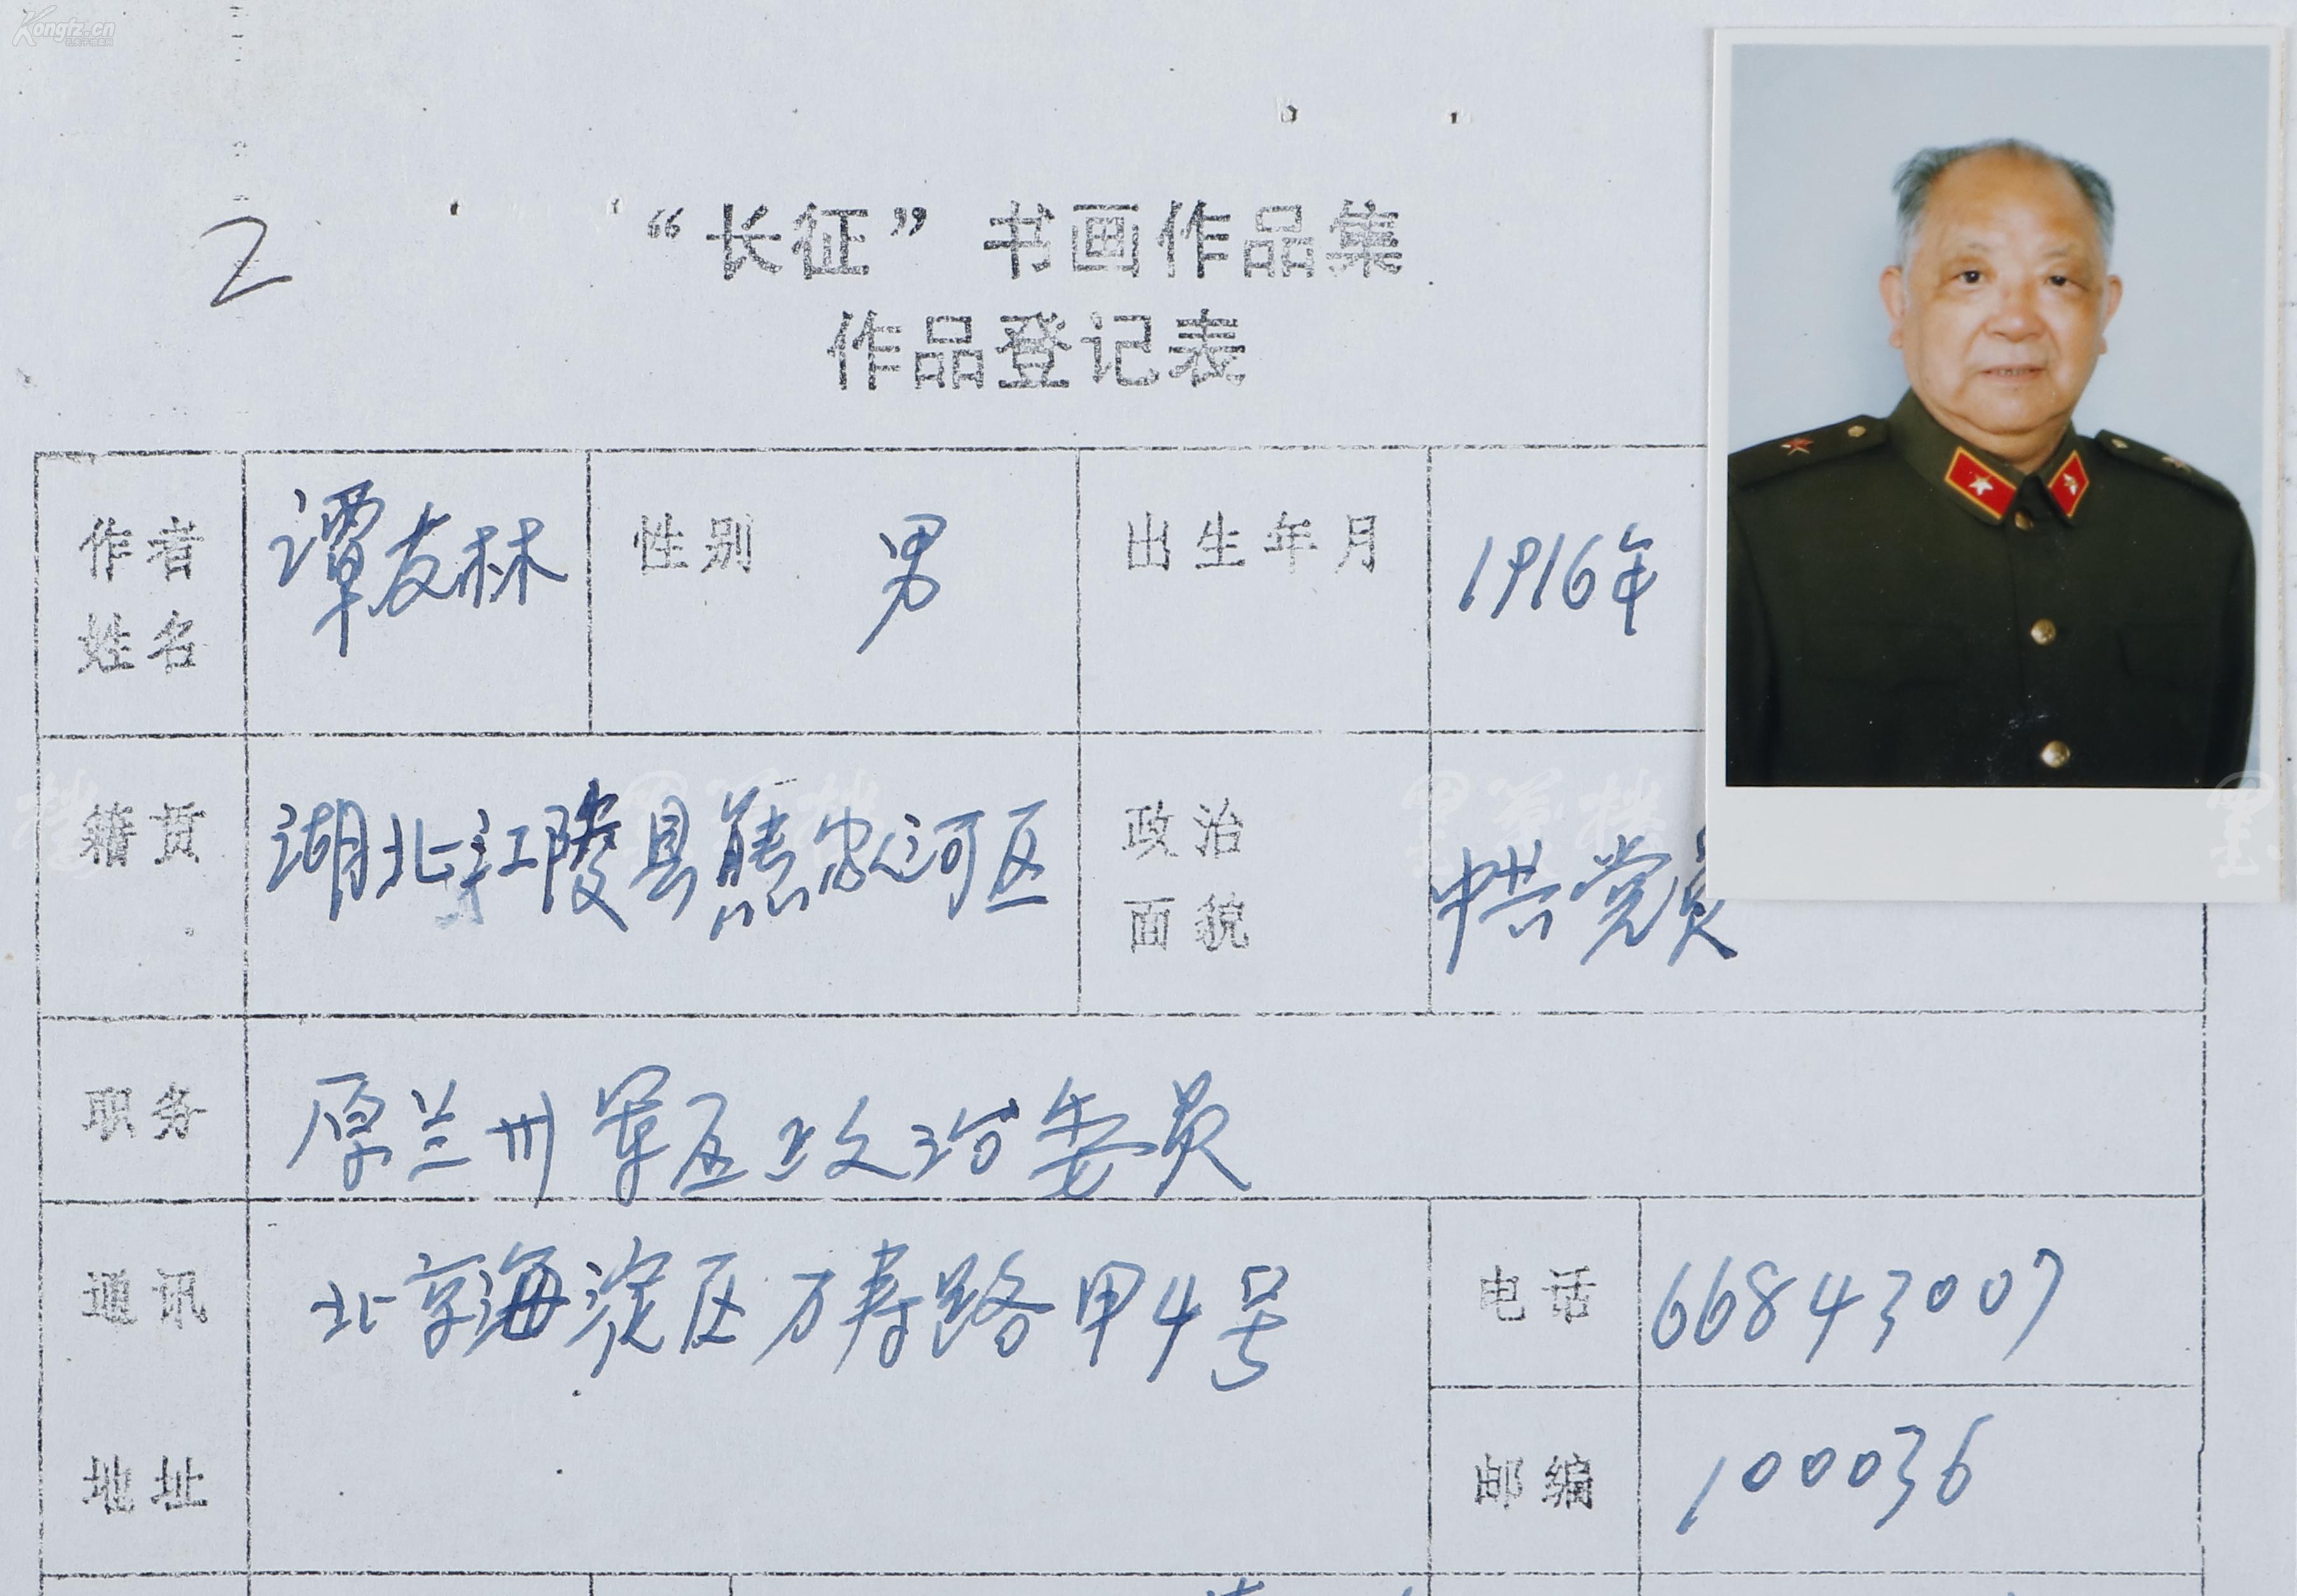 Kongfz.cn
2
“长征”书画作品集
作品登记表
作者姓名 谭友林 性别 男 出生年月 1916年
籍贯 湖北江陵县熊家河区 政治面貌 中共党员
职务 原兰州军区政治委员
通讯地址 北京海淀区万寿路甲4号 电话 66843007
邮编 100036